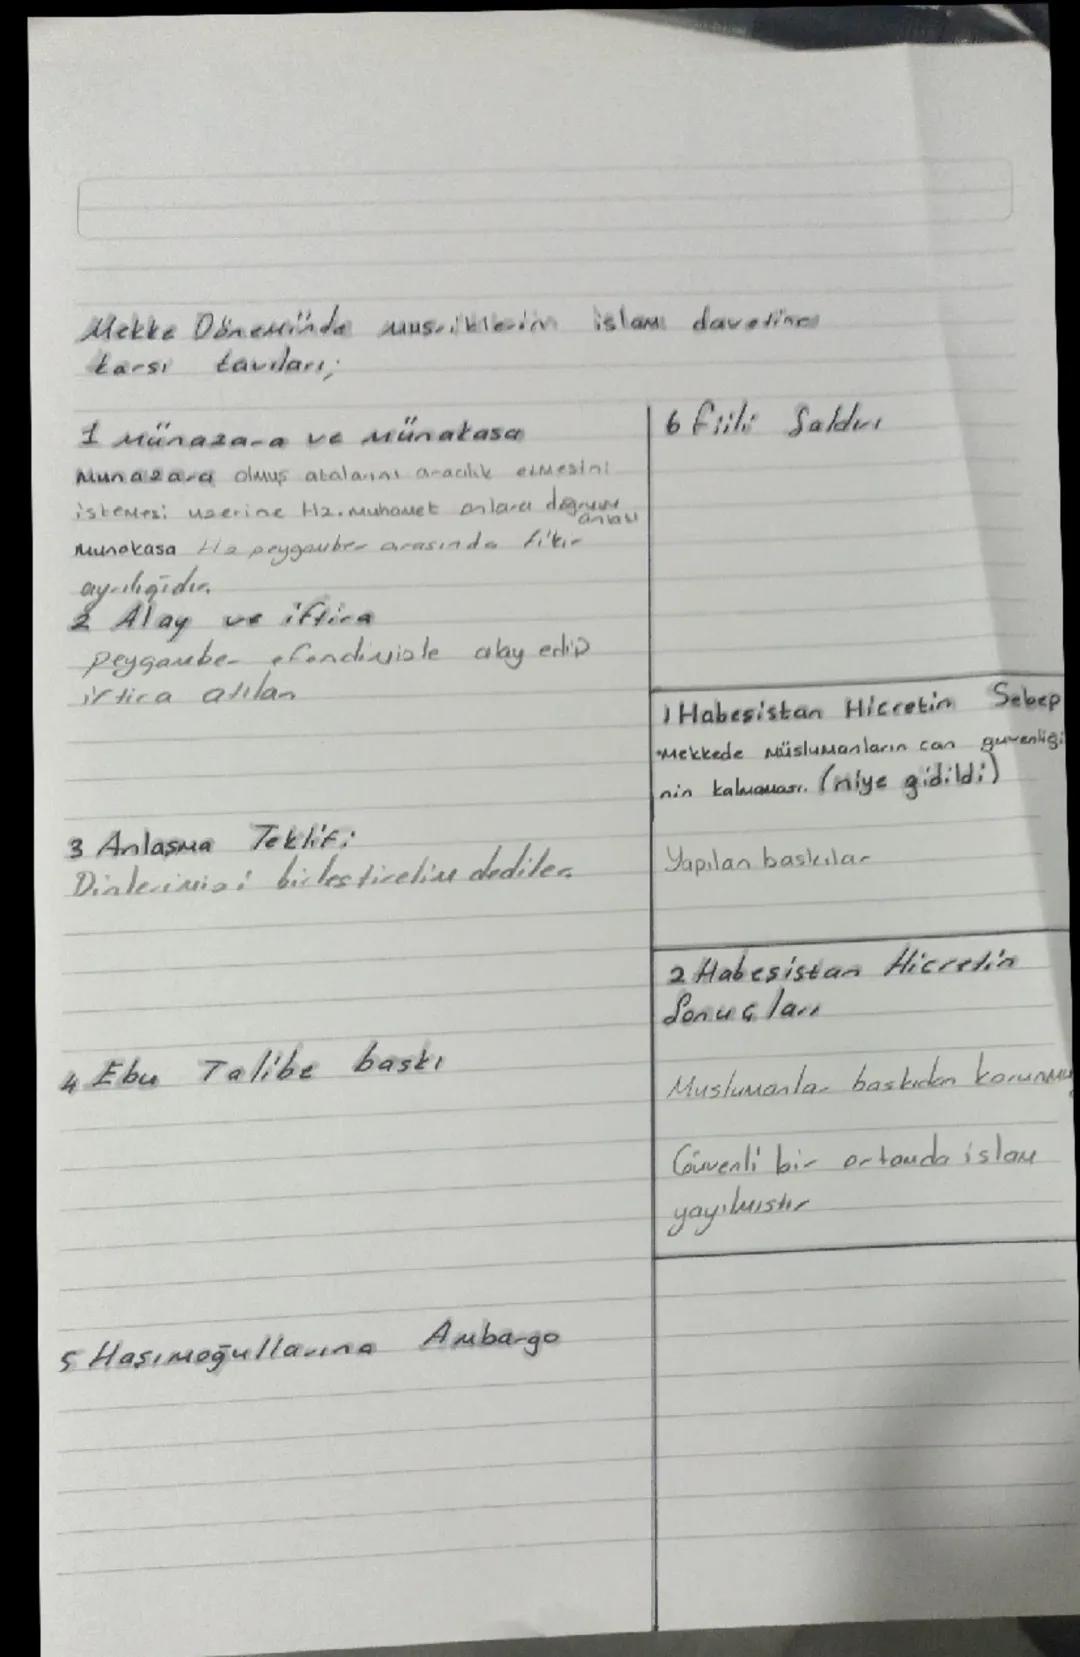 Mekke Döneminde musriklerin islam davetine
karsı tavırları;
1 Münazara ve Münakasa
Munazara olmuş atalarını aracılık etmesini
istemesi uzerine Hz. Muhamet onlara doğruyu
anlası
Munakasa Hz peygamber arasında fikir
ayrılığıdır.
2 Alay ve iftira
peygamber efendimizle alay edip
iftira atılan
3 Anlaşma Teklifi
Dinlerimizi birlestirelim dediler
4 Ebu Talibe baskı
5 Haşımoğullarına Ambargo
6 fiili Saldırı
1 Habesistan Hicretin Sebep
•Mekkede Müslumanların can guvenliği
nin kalmaması. (niye gidildi)
Yapılan baskılar
2 Habesistan Hicretin
Sonuçları
Muslumanlar baskıdan korunmu
Güvenli bir ortamda islam
yayılmıstır